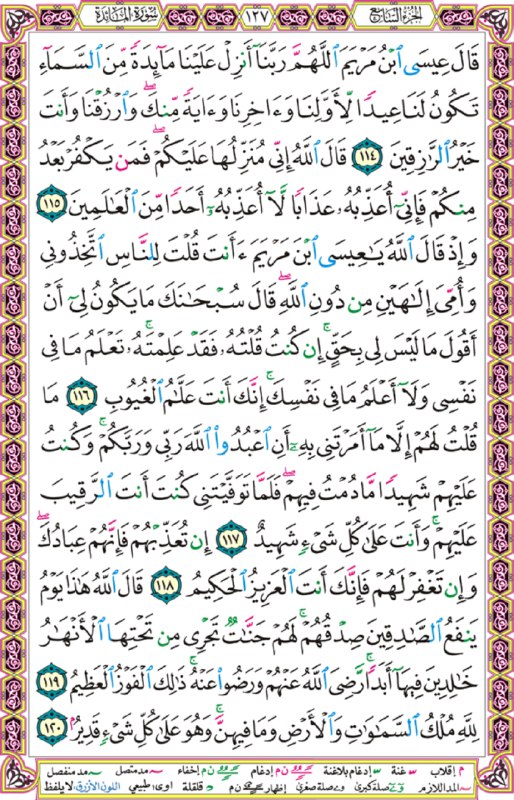 الجزء السابع ١٢٧ سورة المائدة
قَالَ عِيسَى ٱبۡنُ مَرۡيَمَ ٱللَّهُمَّ رَبَّنَآ أَنزِلۡ عَلَيۡنَا مَآئِدَةٗ مِّنَ ٱلسَّمَآءِ
تَكُونُ لَنَا عِيدٗا لِّأَوَّلِنَا وَءَاخِرِنَا وَءَايَةٗ مِّنكَۖ وَٱرۡزُقۡنَا وَأَنتَ
خَيۡرُ ٱلرَّٰزِقِينَ ١١٤ قَالَ ٱللَّهُ إِنِّي مُنَزِّلُهَا عَلَيۡكُمۡۖ فَمَن يَكۡفُرۡ بَعۡدُ
مِنكُمۡ فَإِنِّيٓ أُعَذِّبُهُۥ عَذَابٗا لَّآ أُعَذِّبُهُۥٓ أَحَدٗا مِّنَ ٱلۡعَٰلَمِينَ ١١٥
وَإِذۡ قَالَ ٱللَّهُ يَٰعِيسَى ٱبۡنَ مَرۡيَمَ ءَأَنتَ قُلۡتَ لِلنَّاسِ ٱتَّخِذُونِي
وَأُمِّيَ إِلَٰهَيۡنِ مِن دُونِ ٱللَّهِۖ قَالَ سُبۡحَٰنَكَ مَا يَكُونُ لِيٓ أَنۡ
أَقُولَ مَا لَيۡسَ لِي بِحَقٍّۚ إِن كُنتُ قُلۡتُهُۥ فَقَدۡ عَلِمۡتَهُۥۚ تَعۡلَمُ مَا فِي
نَفۡسِي وَلَآ أَعۡلَمُ مَا فِي نَفۡسِكَۚ إِنَّكَ أَنتَ عَلَّٰمُ ٱلۡغُيُوبِ ١١٦ مَا
قُلۡتُ لَهُمۡ إِلَّا مَآ أَمَرۡتَنِي بِهِۦٓ أَنِ ٱعۡبُدُواْ ٱللَّهَ رَبِّي وَرَبَّكُمۡۚ وَكُنتُ
عَلَيۡهِمۡ شَهِيدٗا مَّا دُمۡتُ فِيهِمۡۖ فَلَمَّا تَوَفَّيۡتَنِي كُنتَ أَنتَ ٱلرَّقِيبَ
عَلَيۡهِمۡۚ وَأَنتَ عَلَىٰ كُلِّ شَيۡءٖ شَهِيدٌ ١١٧ إِن تُعَذِّبۡهُمۡ فَإِنَّهُمۡ عِبَادُكَۖ
وَإِن تَغۡفِرۡ لَهُمۡ فَإِنَّكَ أَنتَ ٱلۡعَزِيزُ ٱلۡحَكِيمُ ١١٨ قَالَ ٱللَّهُ هَٰذَا يَوۡمُ
يَنفَعُ ٱلصَّٰدِقِينَ صِدۡقُهُمۡۚ لَهُمۡ جَنَّٰتٞ تَجۡرِي مِن تَحۡتِهَا ٱلۡأَنۡهَٰرُ
خَٰلِدِينَ فِيهَآ أَبَدٗاۖ رَّضِيَ ٱللَّهُ عَنۡهُمۡ وَرَضُواْ عَنۡهُۚ ذَٰلِكَ ٱلۡفَوۡزُ ٱلۡعَظِيمُ ١١٩
لِلَّهِ مُلۡكُ ٱلسَّمَٰوَٰتِ وَٱلۡأَرۡضِ وَمَا فِيهِنَّۚ وَهُوَ عَلَىٰ كُلِّ شَيۡءٖ قَدِيرُۢ ١٢٠
م إقلاب غنة إدغام بلاغنة ن م إدغام ن م إخفاء مد متصل مد منفصل
المد اللازم صلة كبرى صلة صغرى إظهار ن م قلقلة اوى: طبيعي اللون الأزرق: لا يلفظ